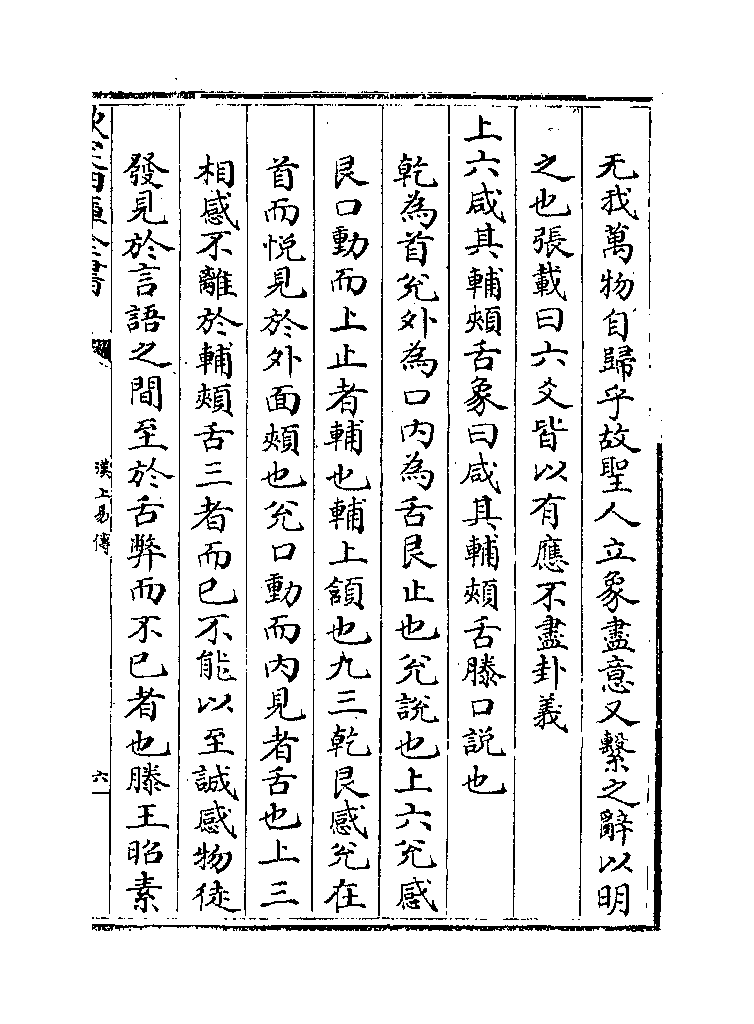 无我萬物自歸乎故聖人立象盡意又繫之辭以明
之也張載曰六爻皆以有應不盡卦義
上六咸其輔頰舌象曰咸其輔頰舌滕口説也
乾為首兊外為口内為舌艮止也兊說也上六兊感
艮口動而上止者輔也輔上頷也九三乾艮感兊在
首而悦見於外面頰也兊口動而内見者舌也上三
相感不離於輔頰舌三者而已不能以至誠感物徒
發見於言語之間至於舌弊而不已者也滕王昭素
欽定四庫全書
漢上易傳
六